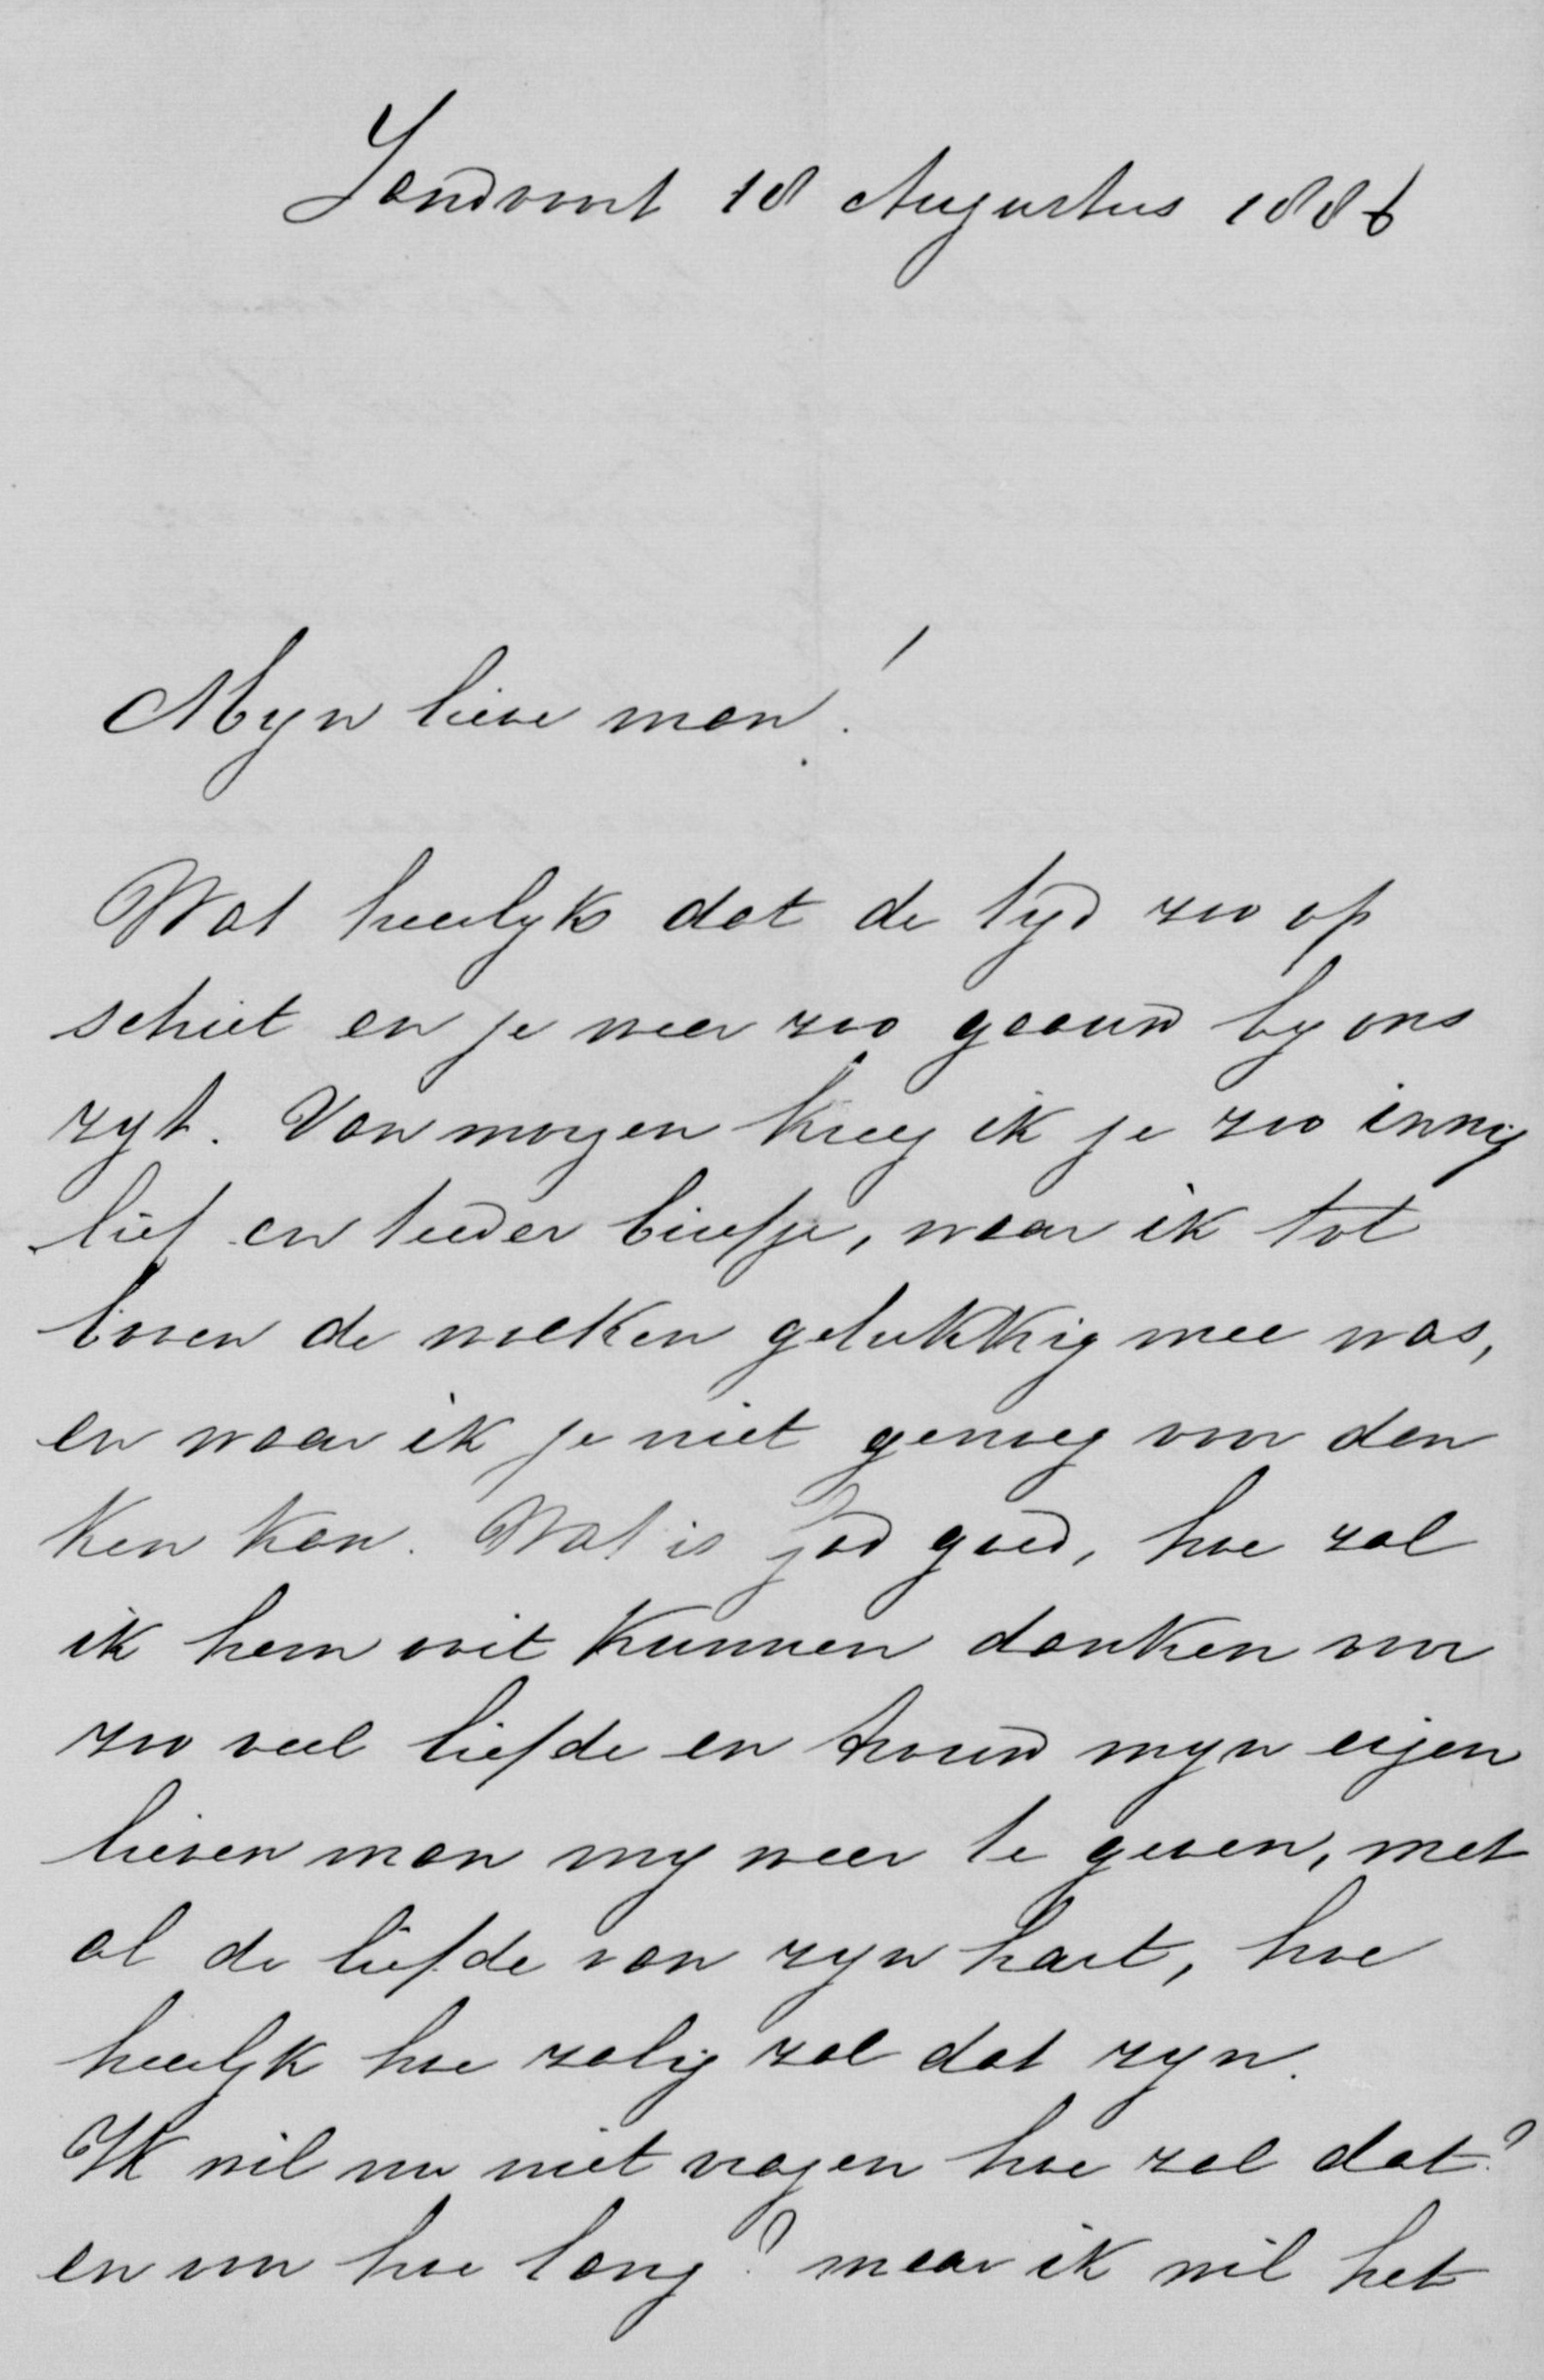 Zandvoort 18 Augustus 1886
Myn lieve man!
Wat heerlyk dat de tyd zoo op
schiet en je weer zoo gaauw by ons
zyt. Van morgen kreeg ik je zoo innig
lief en teeder briefje, waar ik tot
boven de wolken gelukkig mee was,
en waar ik je niet genoeg voor dan
ken kan. Wat is God goed, hoe zal
ik hem ooit kunnen danken voor
zoo veel liefde en trouw myn eigen
lieven man my weer te geven, met
al de liefde van zyn hart, hoe
heerlyk hoe zalig zal dat zyn.
Ik wil nu niet vragen hoe zal dat?
en voor hoe lang? maar ik wil het